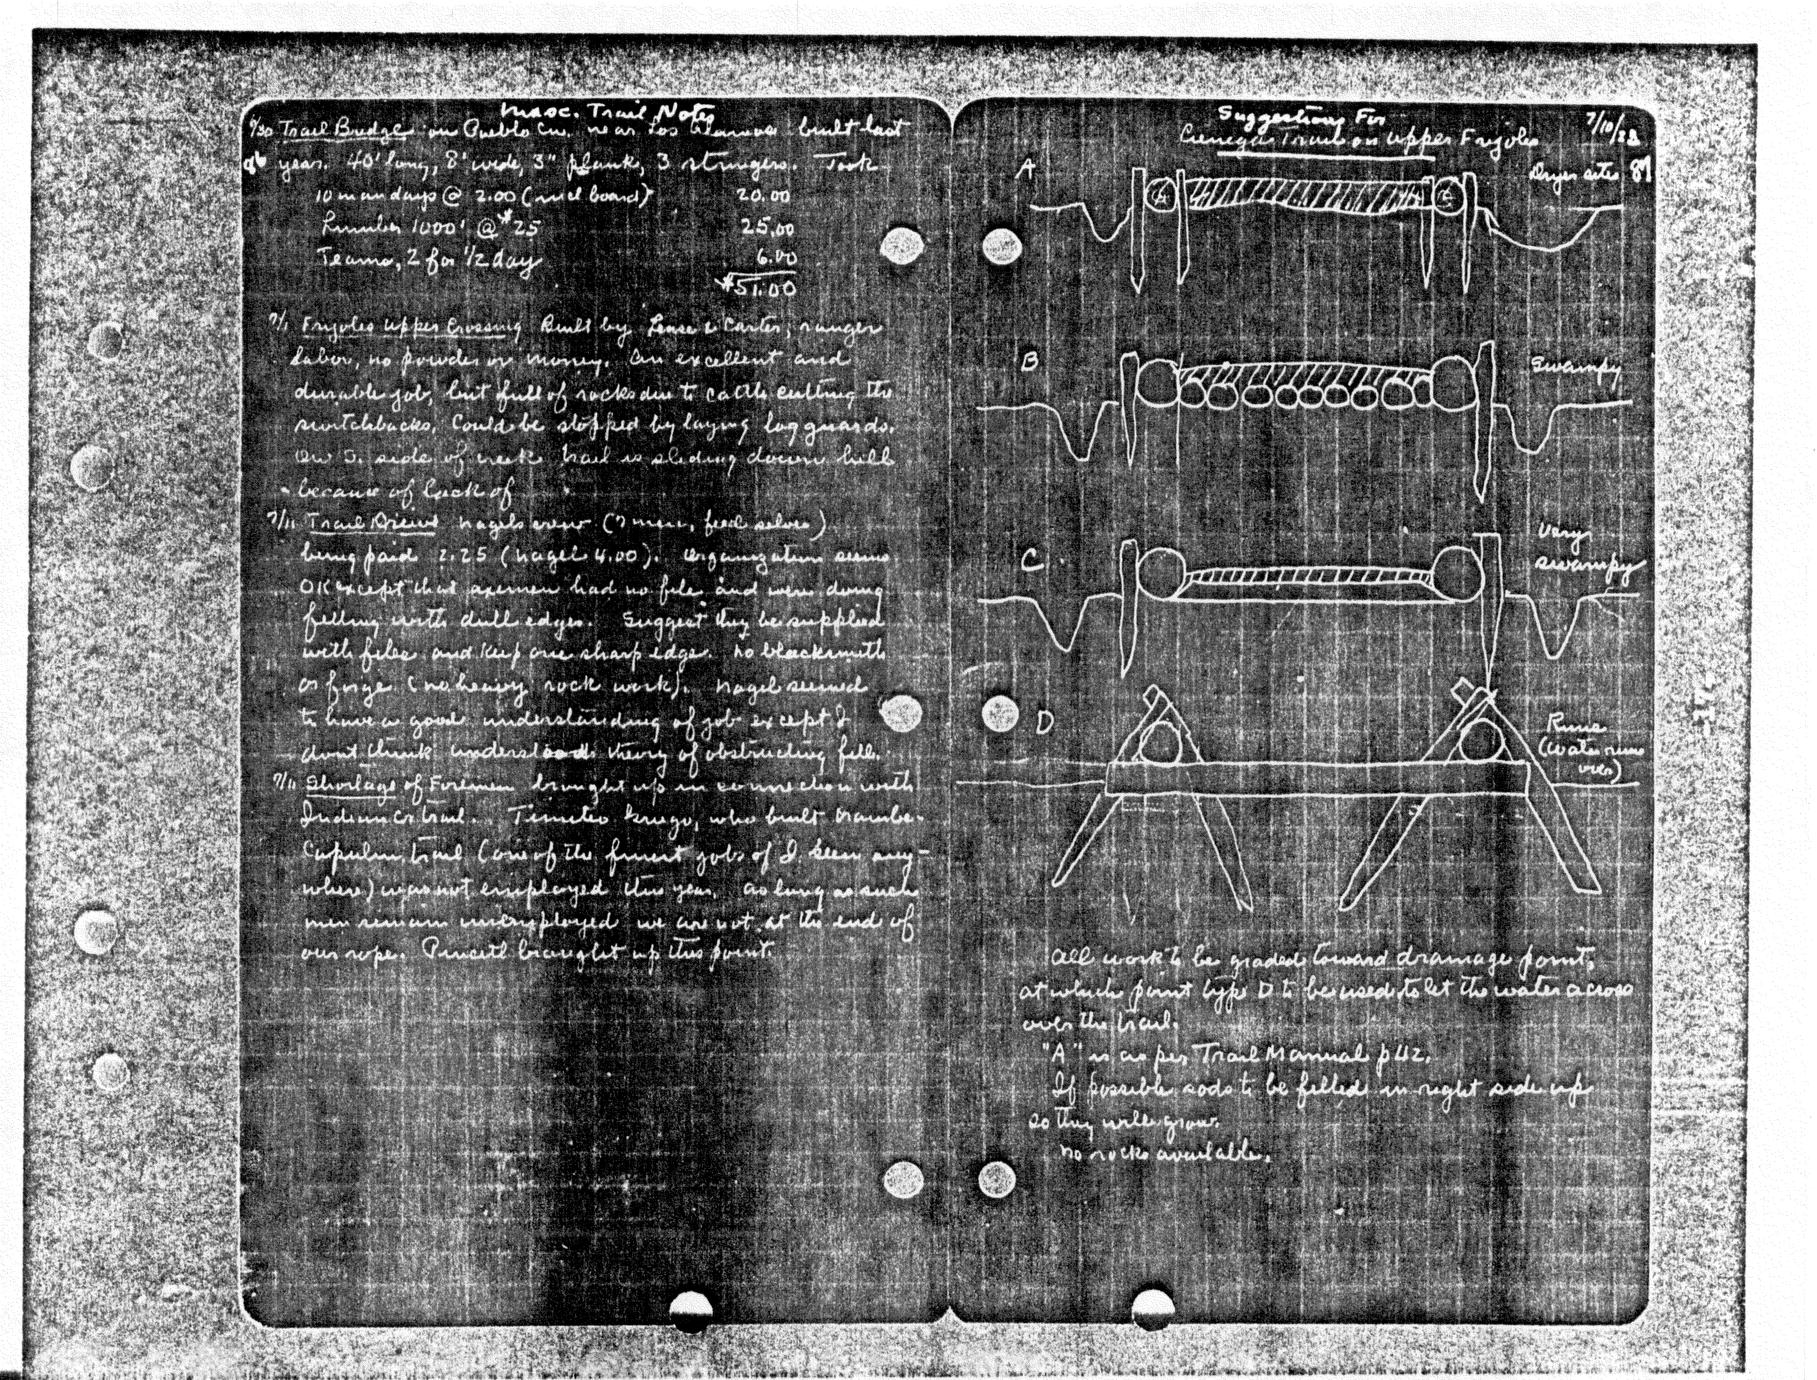 Misc. Trail Notes
6/30 Trail Bridge on Pueblo Cn. near Los Alamos built last
year. 40' long, 8' wide, 3" plank, 3 stringers. Took
10 man days @ 2.00 (incl board) 20.00
Lumber 1000' @ $25 25.00
Teams, 2 for 1/2 day 6.00
$51.00
7/1 Frijoles Upper Crossing Built by Lease & Carter, ranger
labor, no powder or money. An excellent and
durable job, but full of rocks due to cattle cutting the
switchbacks. Could be stopped by laying log guards.
On S. side of creek trail is sliding down hill
because of lack of
7/11 Trail Crews Nagels crew (7 men, feed selves)
being paid 2.25 (Nagel 4.00). Organization seems
OK except that axemen had no file and were doing
felling with dull edges. Suggest they be supplied
with files and keep one sharp edge. No blacksmith
or forge (no heavy rock work). Nagel seemed
to have a good understanding of job except I
dont think understands theory of obstructing fill.
7/11 Shortage of Foremen brought up in connection with
Indian Cr trail. Timiteo Griego, who built
Capulin trail (one of the finest jobs of I seen any-
where) was not employed this year. As long as such
men remain unemployed we are not at the end of
our rope. brought up this point.
Suggestions For
Cienega Trail on Upper Fryoles
7/10/
A
Dryer sites
B
Swampy
C
Very
swampy
D
Runs
(Water runs
over)
All work to be graded toward drainage point,
at which point type D to be used to let the water across
over the trail.
"A" is as per Trail Manual p 42.
If possible sods to be filled in right side up
so they will grow.
No rocks available.